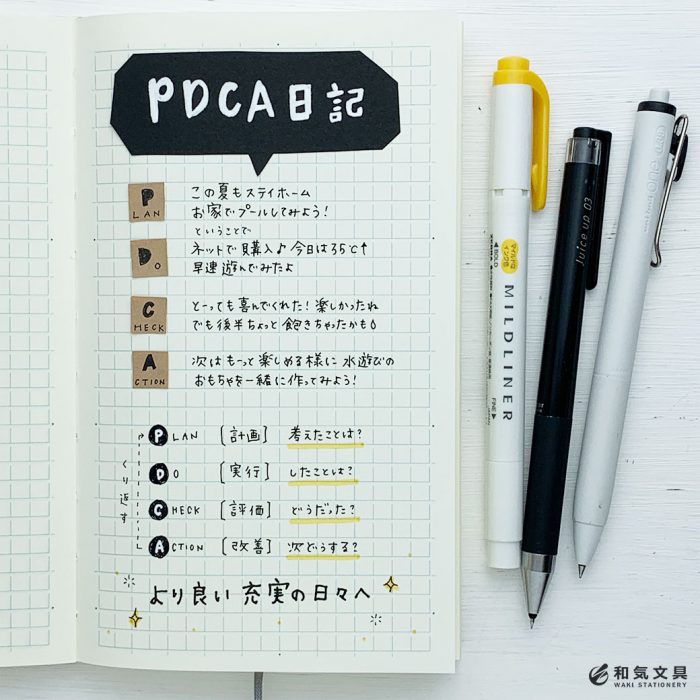 PDCA日記
PLAN
この夏もステイホーム
お家でプールしてみよう!
ということで
DO
ネットで購入♪今日は35℃↑
早速遊んでみたよ
CHECK
とーっても喜んでくれた!楽しかったね
でも後半ちょっと飽きちゃったかも
ACTION
次はもっと楽しめる様に水遊びの
おもちゃを一緒に作ってみよう!
PLAN [計画] 考えたことは?
DO [実行] したことは?
CHECK [評価] どうだった?
ACTION [改善] 次どうする?
くり返す
より良い充実の日々へ
BOLD
マイルドな
MILDLINER
FINE
Juice up 03
one
和気文具
WAKI STATIONERY